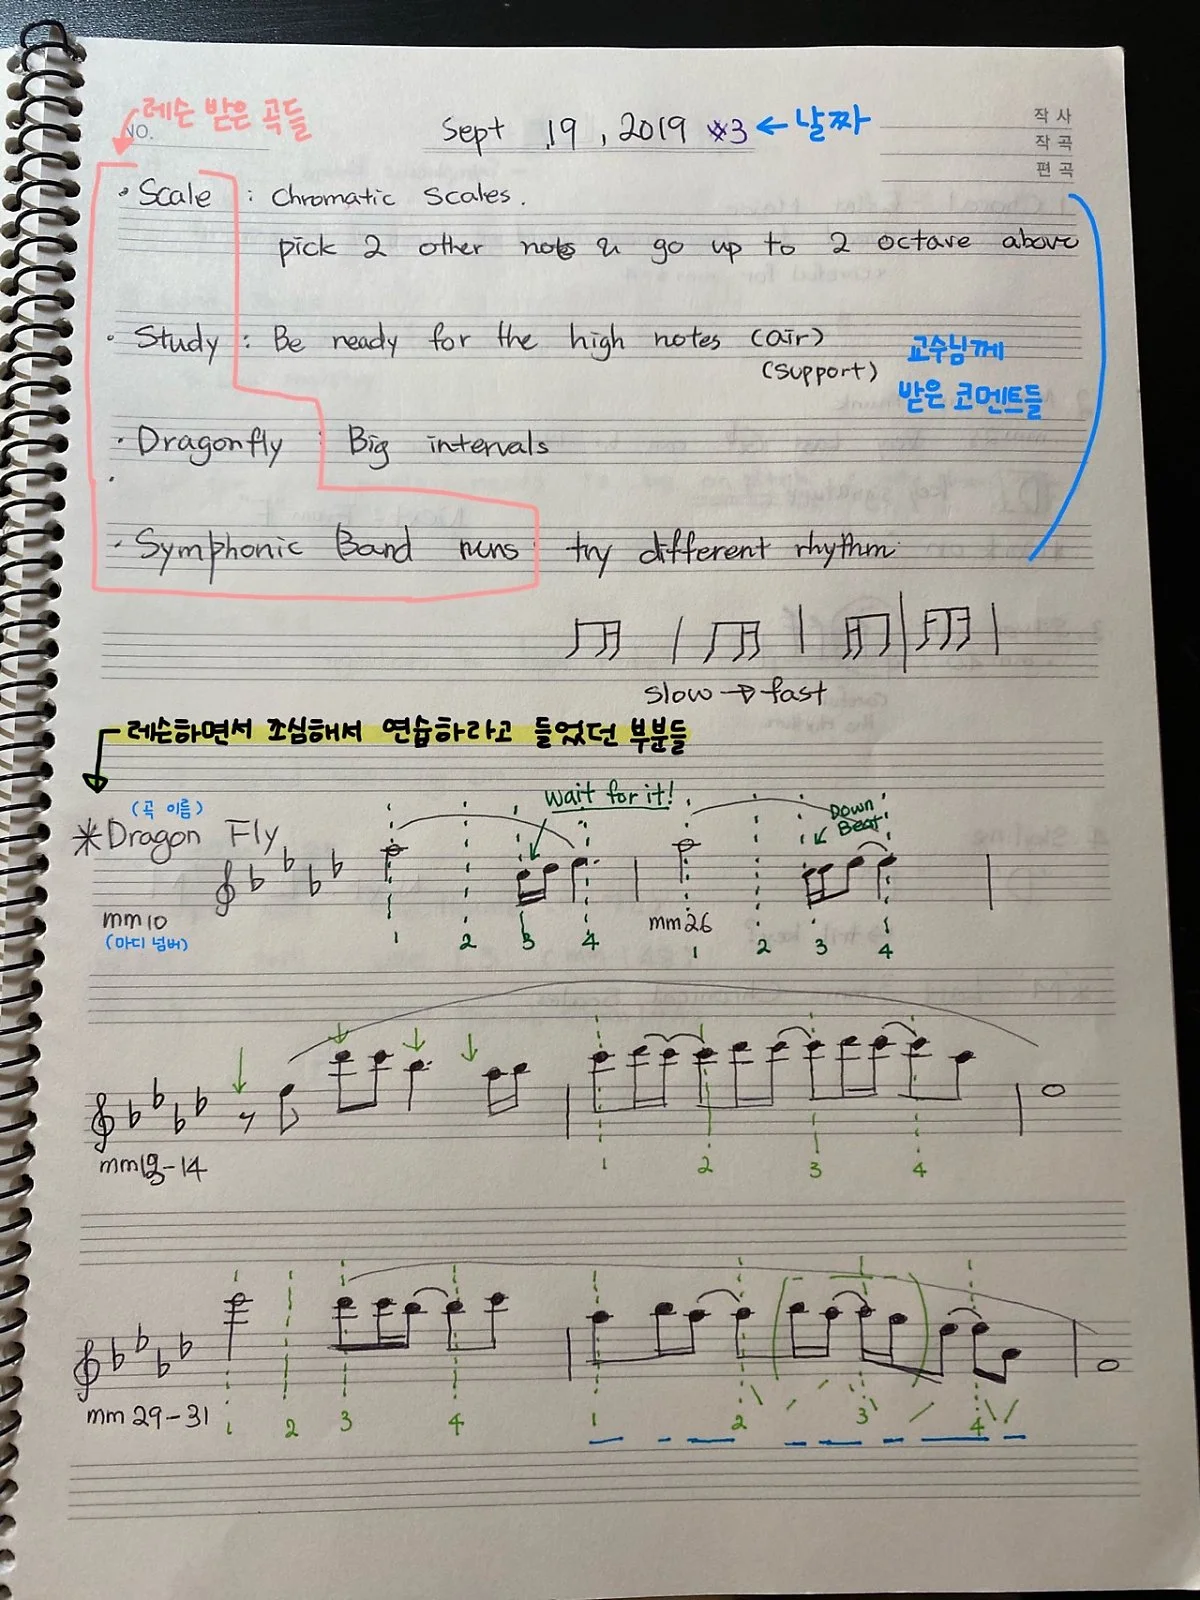 레슨 받은 곡들
NO.
Sept 19, 2019 #3 ← 날짜
작 사
작 곡
편 곡
• Scale : Chromatic Scales.
pick 2 other notes & go up to 2 octave above
• Study : Be ready for the high notes (air)
(support)
교수님께
받은 코멘트들
• Dragonfly : Big intervals
• Symphonic Band runs : try different rhythm
slow → fast
레슨하면서 조심해서 연습하라고 들었던 부분들
(곡 이름)
※Dragon Fly
wait for it!
Down
Beat
mm10
(마디 넘버)
mm26
1 2 3 4 1 2 3 4
mm12-14
1 2 3 4
mm 29-31
1 2 3 4 1 2 3 4